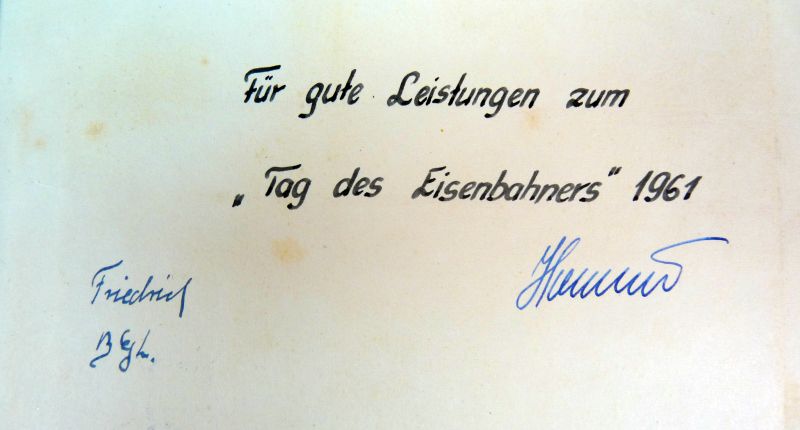 Für gute Leistungen zum
„Tag des Eisenbahners" 1961
Friedrich